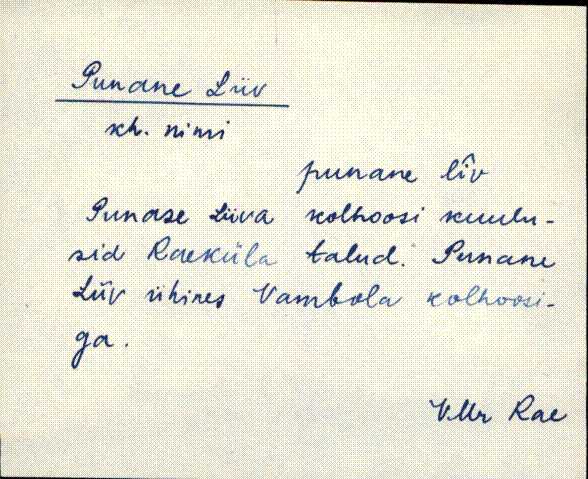 Punane Liiv
kh. nimi
punane lîv
Punase Liiva kolhoosi kuulu-
sid Raeküla talud. Punane
Liiv ühines Vambola kolhoosi-
ga.
VMr Rae